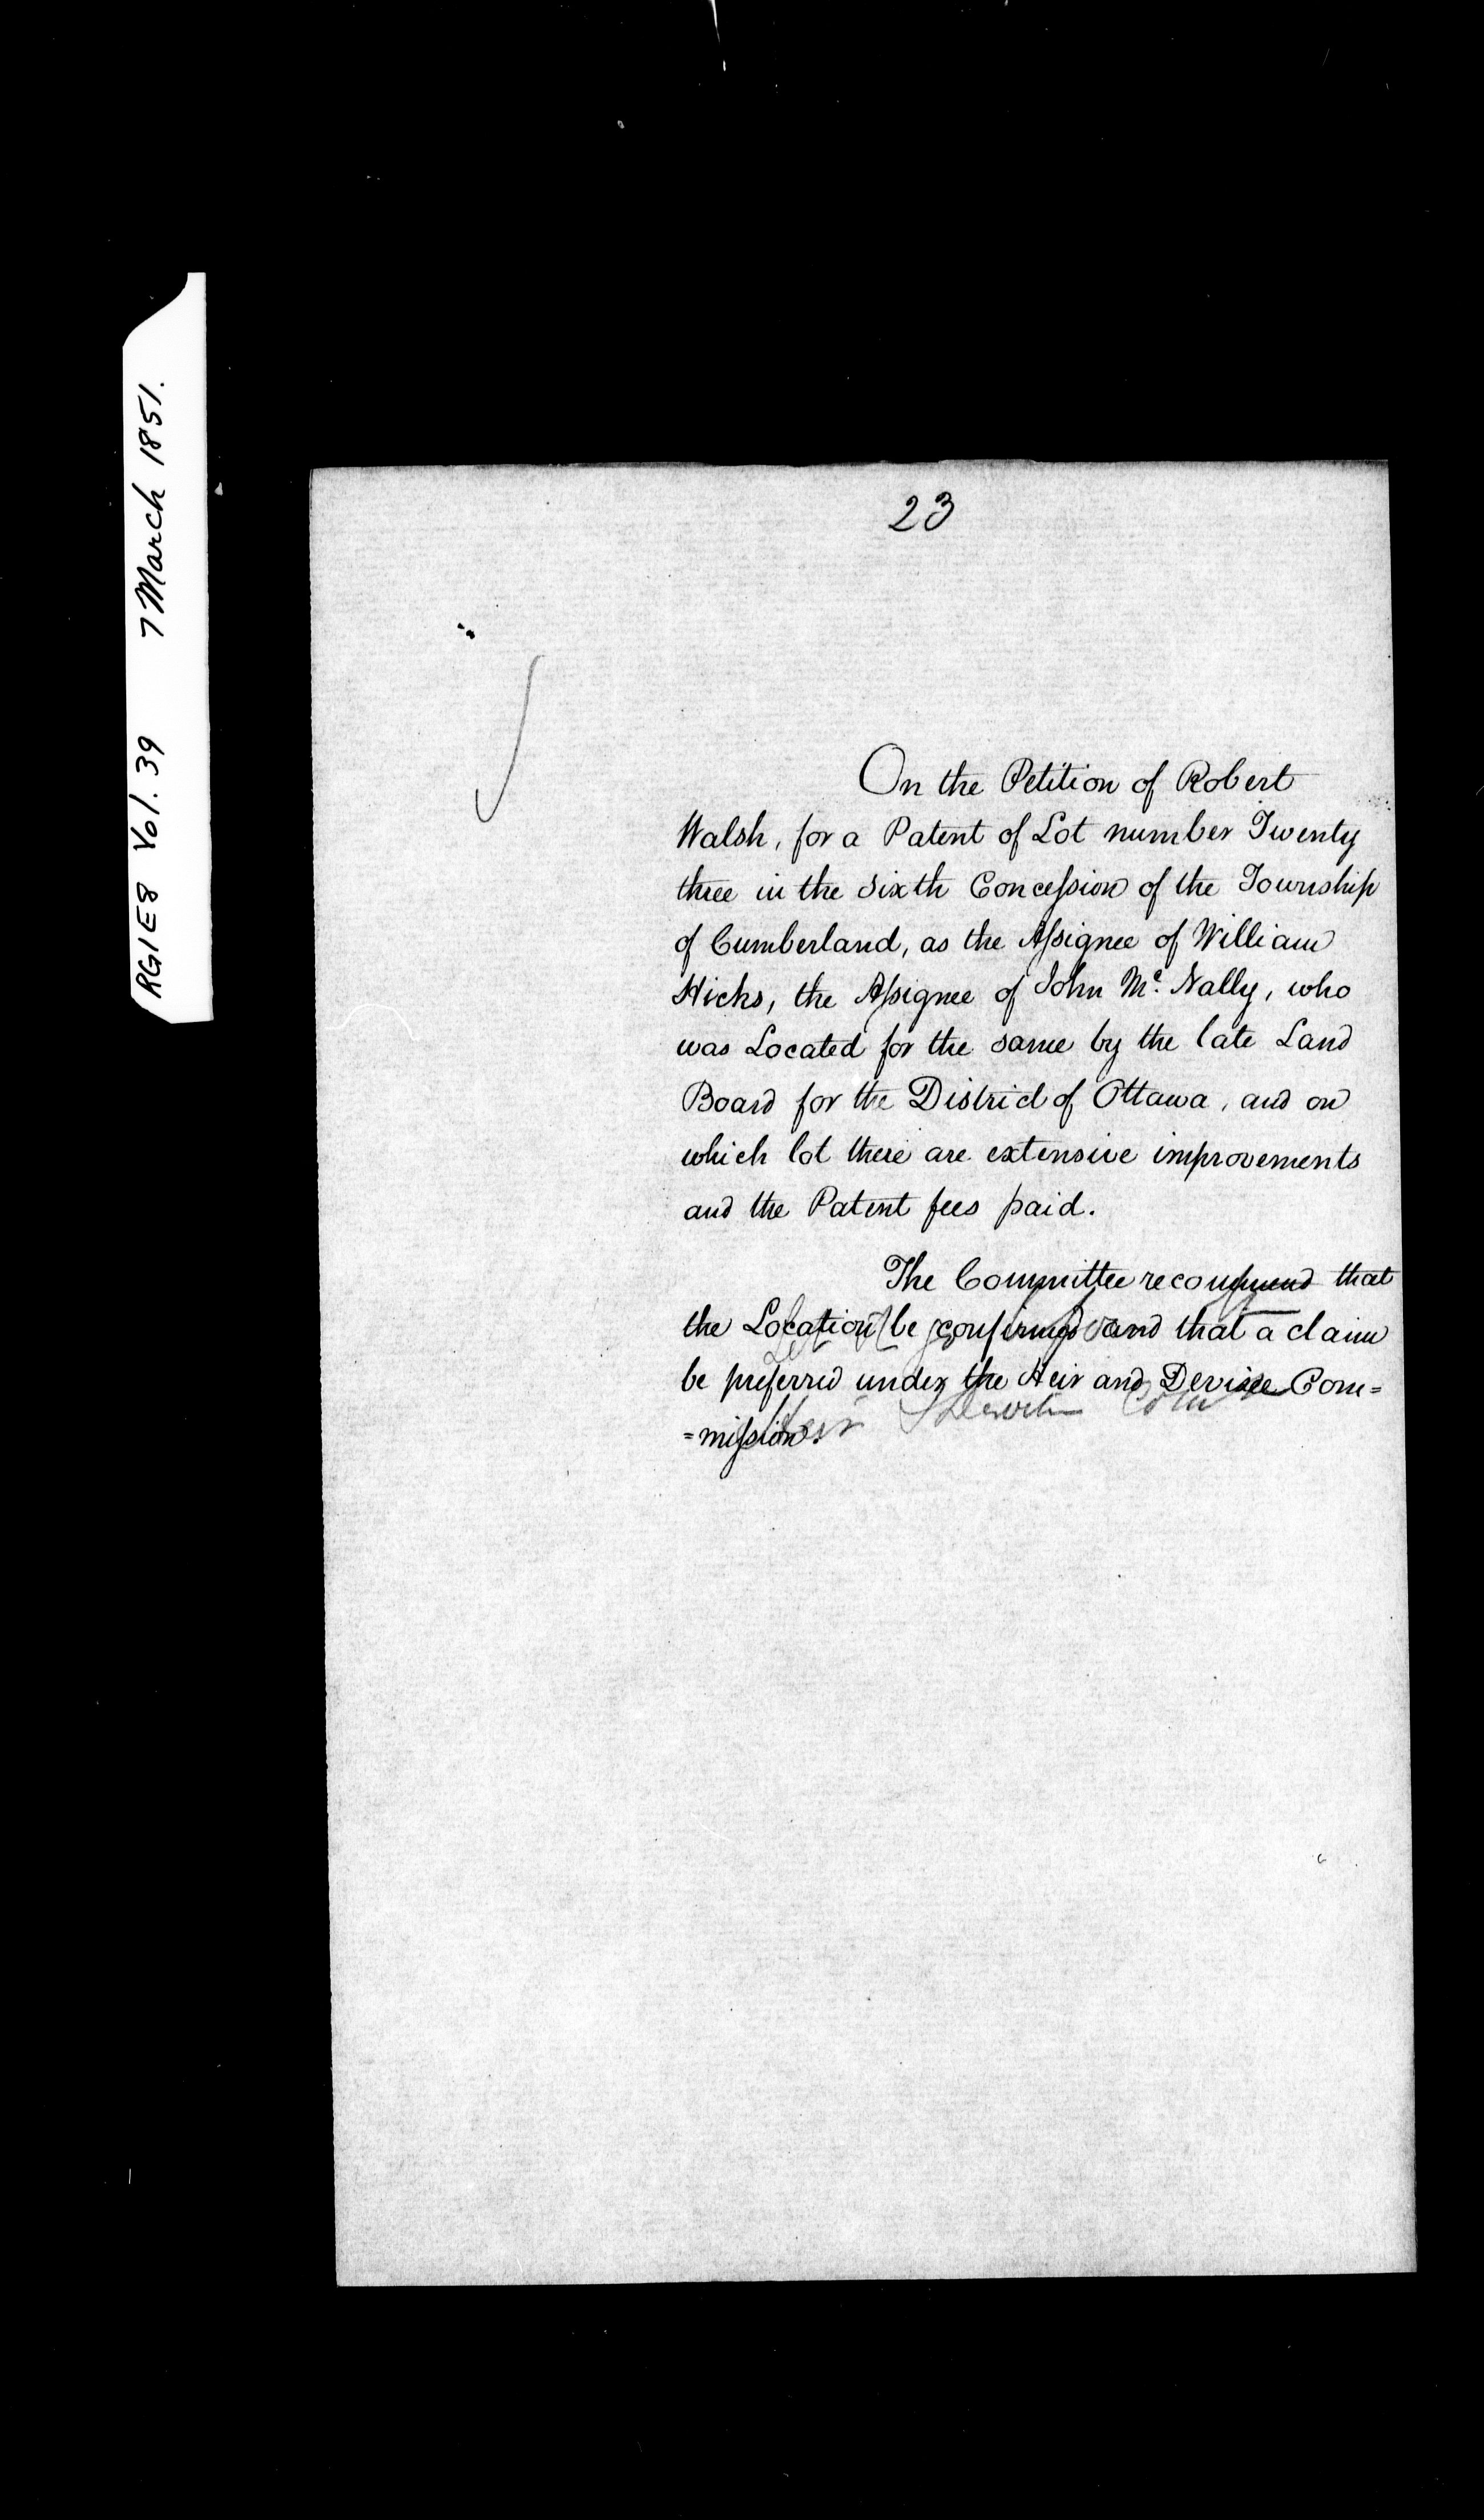 RG1E8 Vol. 39 7 March 1851.
23
On the Petition of Robert
Walsh, for a Patent of Lot number Twenty
three in the sixth Concession of the Township
of Cumberland, as the Assignee of William
Hicks, the Assignee of John Mc. Nally, who
was Located for the same by the late Land
Board for the District of Ottawa, and on
which lot there are extensive improvements
and the Patent fees paid.
The Committee recommend that
the Location be confirmed and that a claim
be preferred under the Heir and Devisee Com=
=mission.